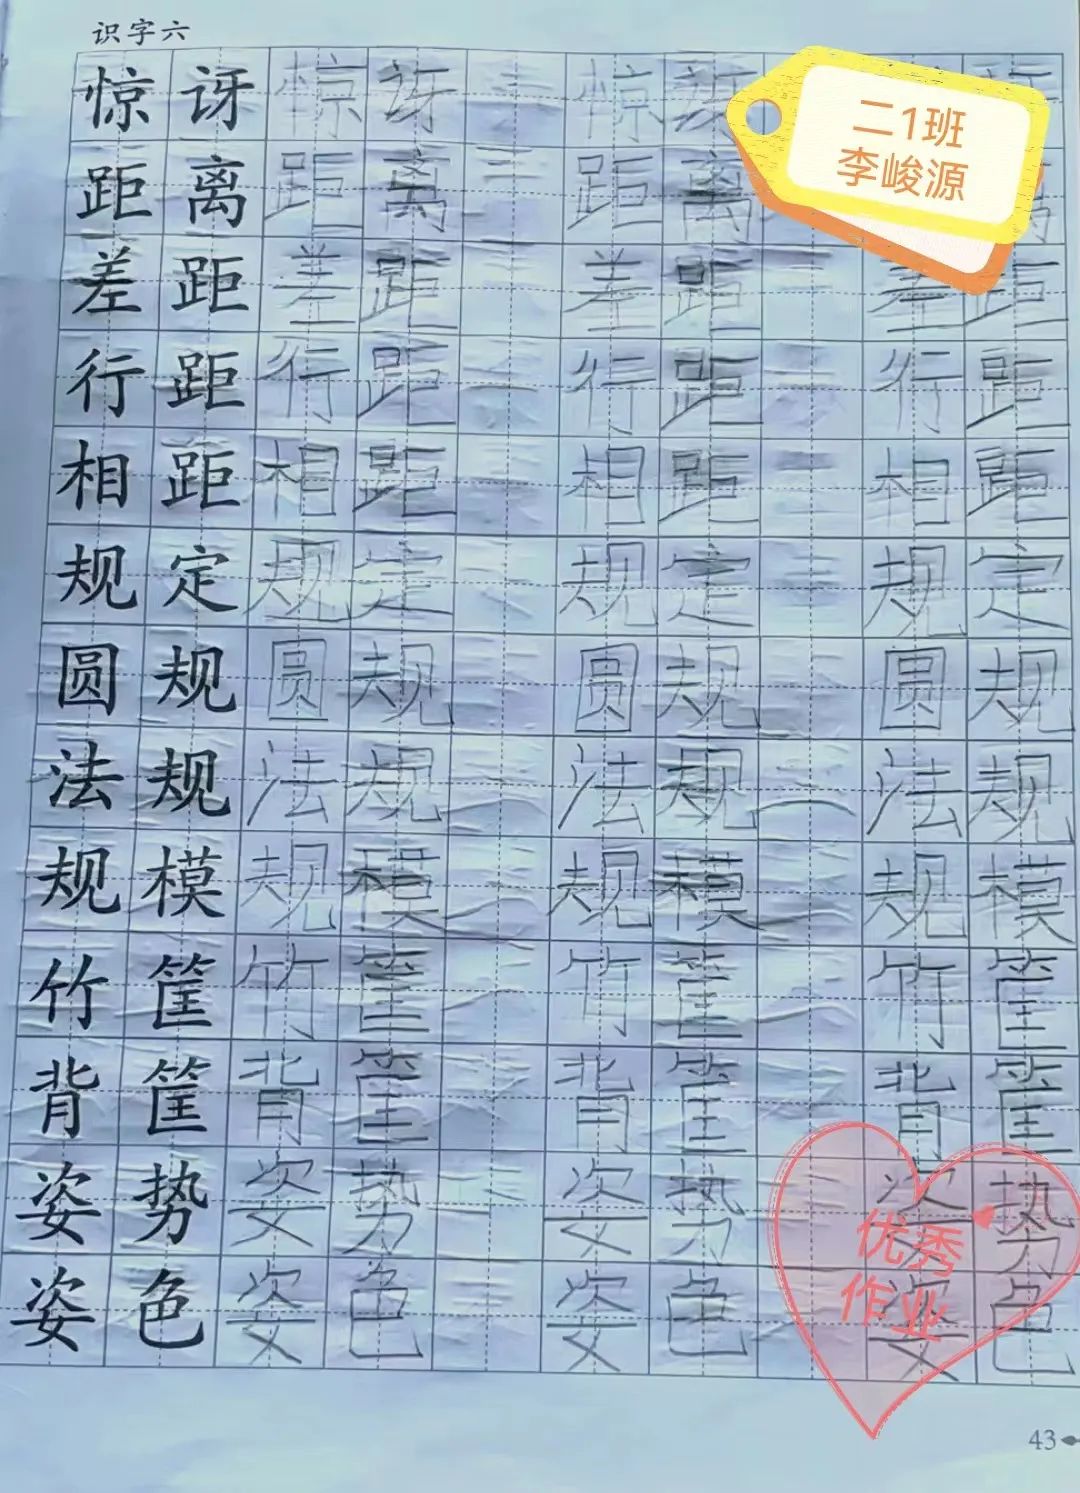 识字六
惊讶 惊讶 惊讶 讶
二1班
李峻源
距离 距离 距离 离
差距 差距 差距 差距
行距 行距 行距 行距
相距 相距 相距 相距
规定 规定 规定 规定
圆规 圆规 圆规 圆规
法规 法规 法规 法规
规模 规模 规模 规模
竹筐 竹筐 竹筐 竹筐
背筐 背筐 背筐 背筐
姿势 姿势 姿势 姿势
姿色 姿色 姿色 姿色
优秀
作业
43